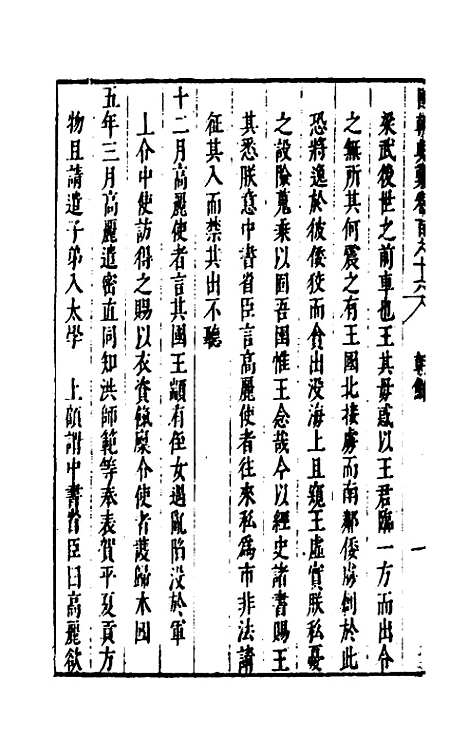 國朝典彙卷百六十六 朝鮮 一
梁武後世之前車也王其毋惑以王君臨一方而出令
之無所其何震之有王國北接虜而南鄰倭虜創於此
恐將逸於彼倭狡而會出没海上且窺王虛實朕私憂
之設險蒐乘以固吾圉惟王念哉今以經史諸書賜王
其悉朕意中書省臣言高麗使者往來私爲市非法請
征其入而禁其出不聽
十二月高麗使者言其國王顓有侄女遇亂陷没於軍
上令中使訪得之賜以衣資餼廩令使者護歸本國
五年三月高麗遣密直同知洪師範等奉表賀平夏貢方
物且請遣子弟入太學 上顧謂中書省臣曰高麗欲